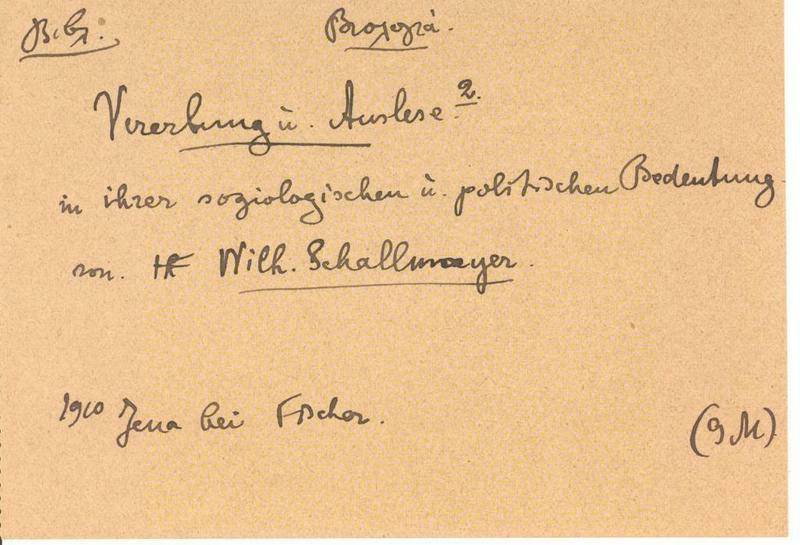 Βιβλ. Βιολογία.
Vererbung u. Auslese².
in ihrer soziologischen u. politischen Bedeutung
von. Wilh. Schallmayer.
1910 Jena bei Fischer. (9 M)